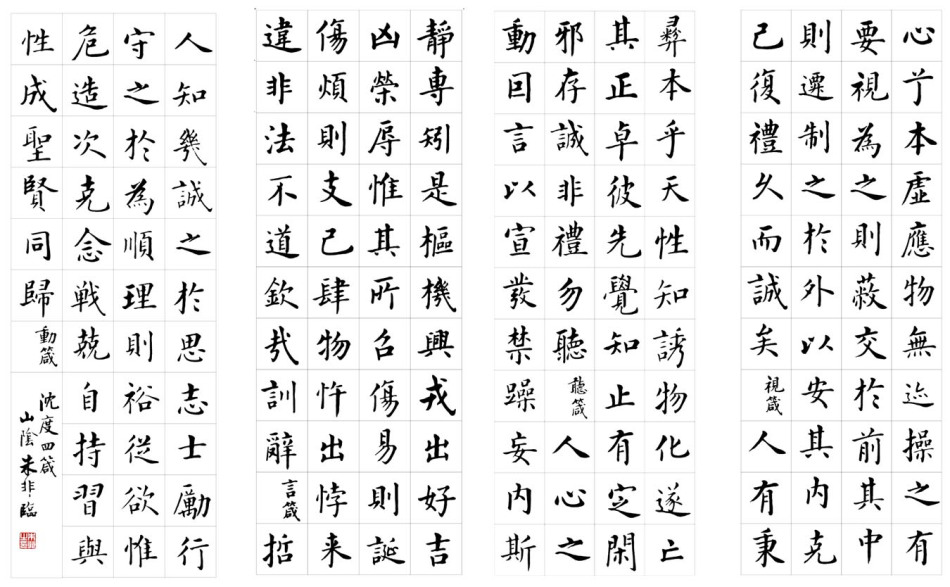 心兮本虛應物無迹操之有
要視為之則蔽交於前其中
則遷制之於外以安其內克
己復禮久而誠矣視箴人有秉
彛本乎天性知誘物化遂亡
其正卓彼先覺知止有定閑
邪存誠非禮勿聽聽箴人心之
動因言以宣發禁躁妄內斯
靜專矧是樞機興戎出好吉
凶榮辱惟其所召傷易則誕
傷煩則支己肆物忤出悖来
違非法不道欽哉訓辭言箴哲
人知幾誠之於思志士勵行
守之於為順理則裕從欲惟
危造次克念戰兢自持習與
性成聖賢同歸動箴
沈度四箴
山陰朱非臨